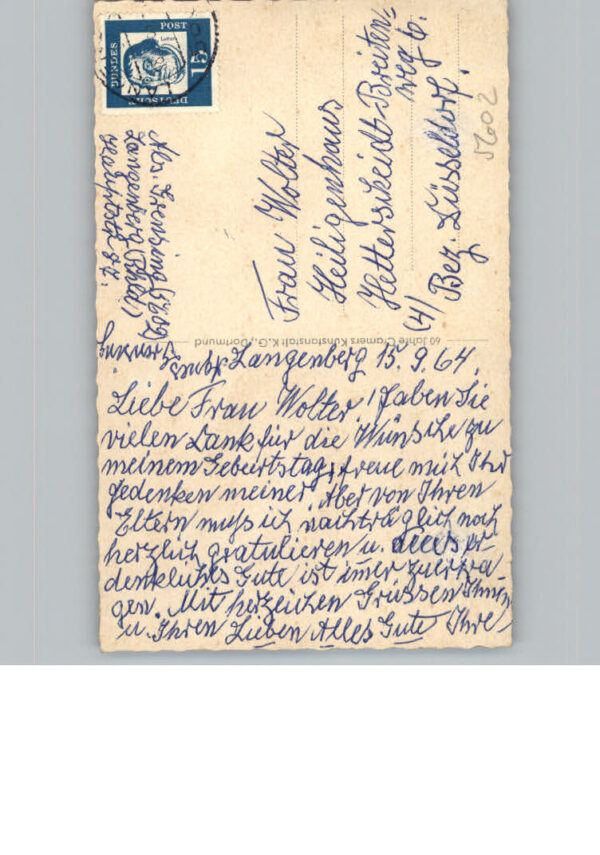 DEUTSCHE
BUNDES
POST
15
Luther
LAN
Abs. Irensing (5602)
Langenberg (Rhld)
Hauptstr. 84.
Frau Wolter
Heiligenhaus
Hetterscheidt-Breiten-
weg 6.
(4) Bez. Düsseldorf.
5602
60 Jahre Cramers Kunstanstalt K.G., Dortmund
Langenberg 15.9.64.
Liebe Frau Wolter! Haben Sie
vielen Dank für die Wünsche zu
meinem Geburtstag, freue mich Ihr
gedenken meiner. Aber von Ihren
Eltern muss ich nachträglich noch
herzlich gratulieren u. alles er-
denkliches Gute ist imer zuertra-
gen. Mit herzlichen Grüssen Ihnen
u. Ihren Lieben Alles Gute Ihre